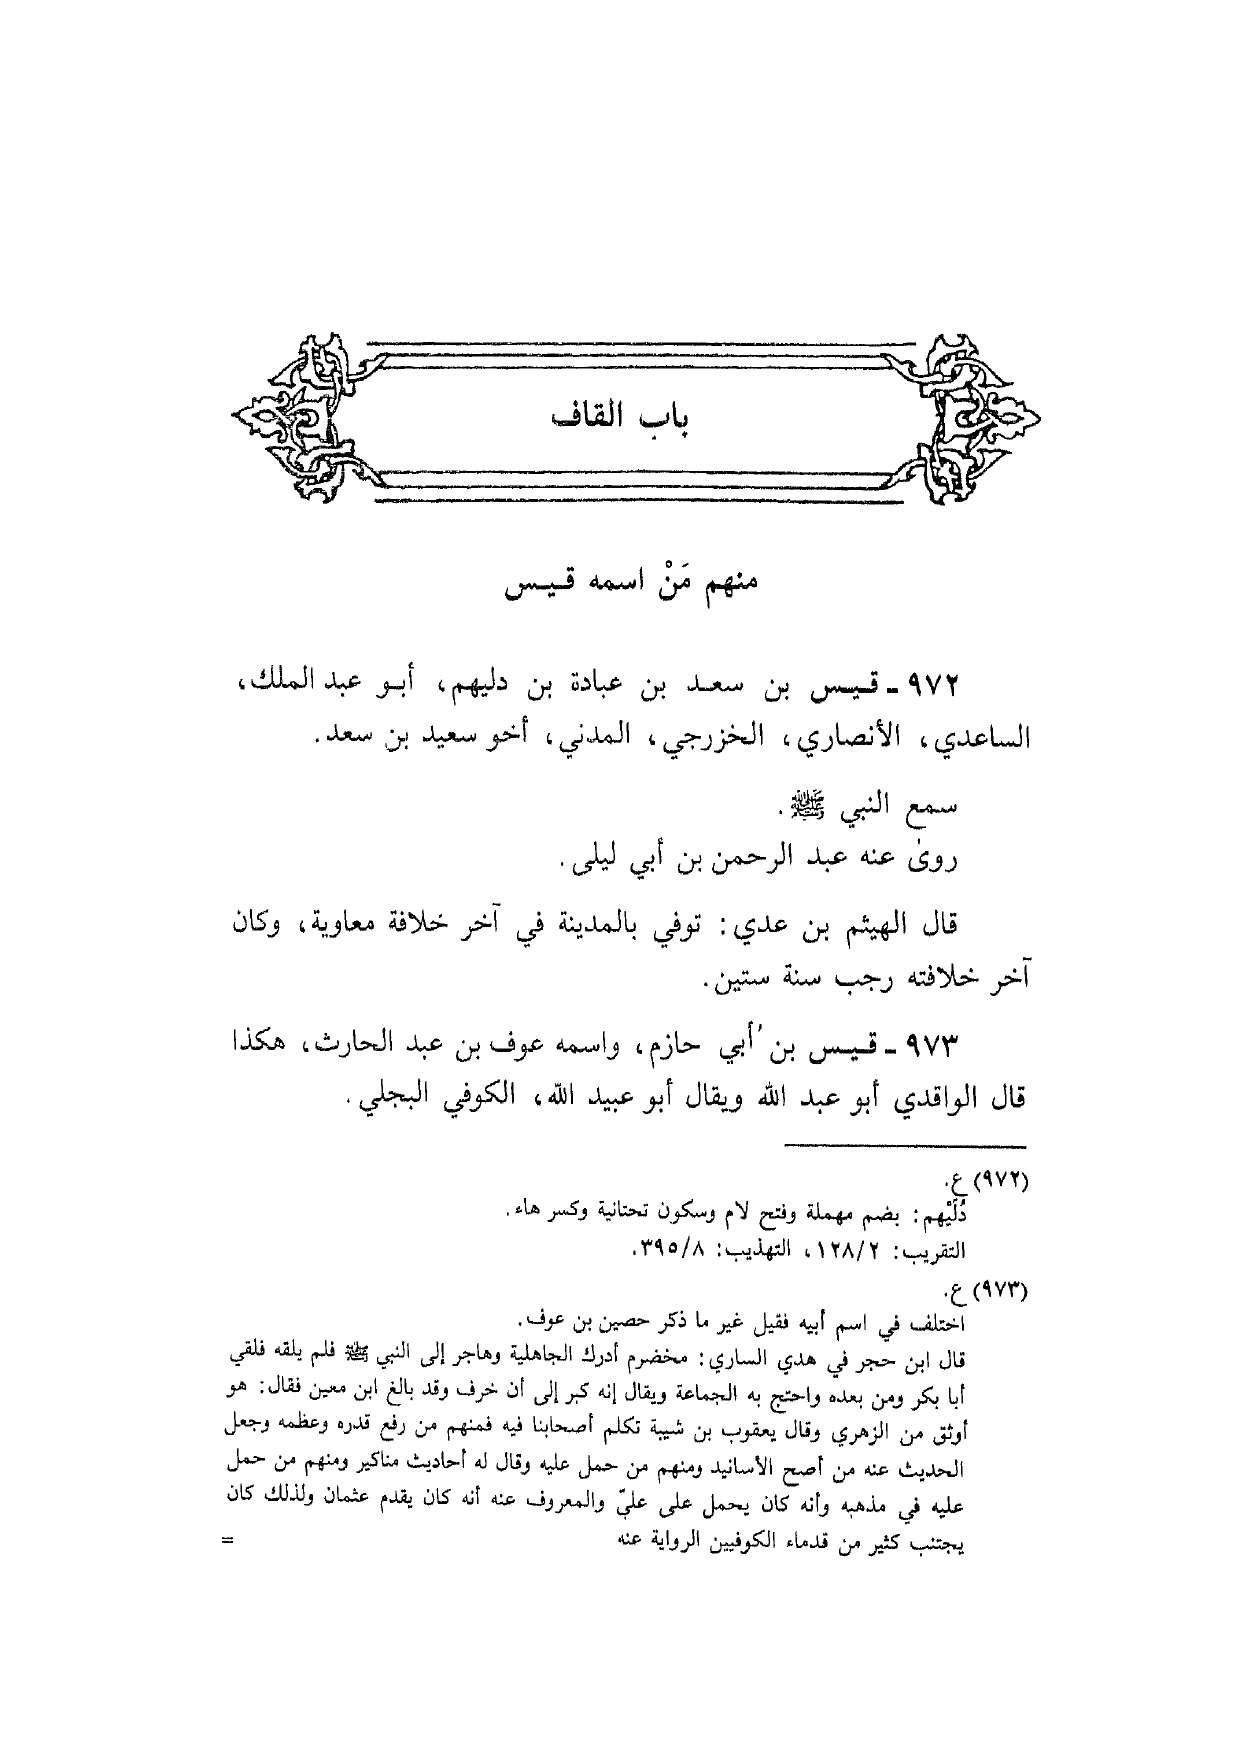 باب القاف
منهم مَنْ اسمه قيس
٩٧٢ ـ قيس بن سعد بن عبادة بن دليهم، أبو عبد الملك،
الساعدي، الأنصاري، الخزرجي، المدني، أخو سعيد بن سعد.
سمع النبي ﷺ.
روى عنه عبد الرحمن بن أبي ليلى.
قال الهيثم بن عدي: توفي بالمدينة في آخر خلافة معاوية، وكان
آخر خلافته رجب سنة ستين.
٩٧٣ ـ قيس بن أبي حازم، واسمه عوف بن عبد الحارث، هكذا
قال الواقدي أبو عبد الله ويقال أبو عبيد الله، الكوفي البجلي.
(٩٧٢) ع.
دُلَيْهم: بضم مهملة وفتح لام وسكون تحتانية وكسر هاء.
التقريب: ١٢٨/٢، التهذيب: ٣٩٥/٨.
(٩٧٣) ع.
اختلف في اسم أبيه فقيل غير ما ذكر حصين بن عوف.
قال ابن حجر في هدي الساري: مخضرم أدرك الجاهلية وهاجر إلى النبي ﷺ فلم يلقه فلقي
أبا بكر ومن بعده واحتج به الجماعة ويقال إنه كبر إلى أن خرف وقد بالغ ابن معين فقال: هو
أوثق من الزهري وقال يعقوب بن شيبة تكلم أصحابنا فيه فمنهم من رفع قدره وعظمه وجعل
الحديث عنه من أصح الأسانيد ومنهم من حمل عليه وقال له أحاديث مناكير ومنهم من حمل
عليه في مذهبه وأنه كان يحمل على عليّ والمعروف عنه أنه كان يقدم عثمان ولذلك كان
يجتنب كثير من قدماء الكوفيين الرواية عنه =